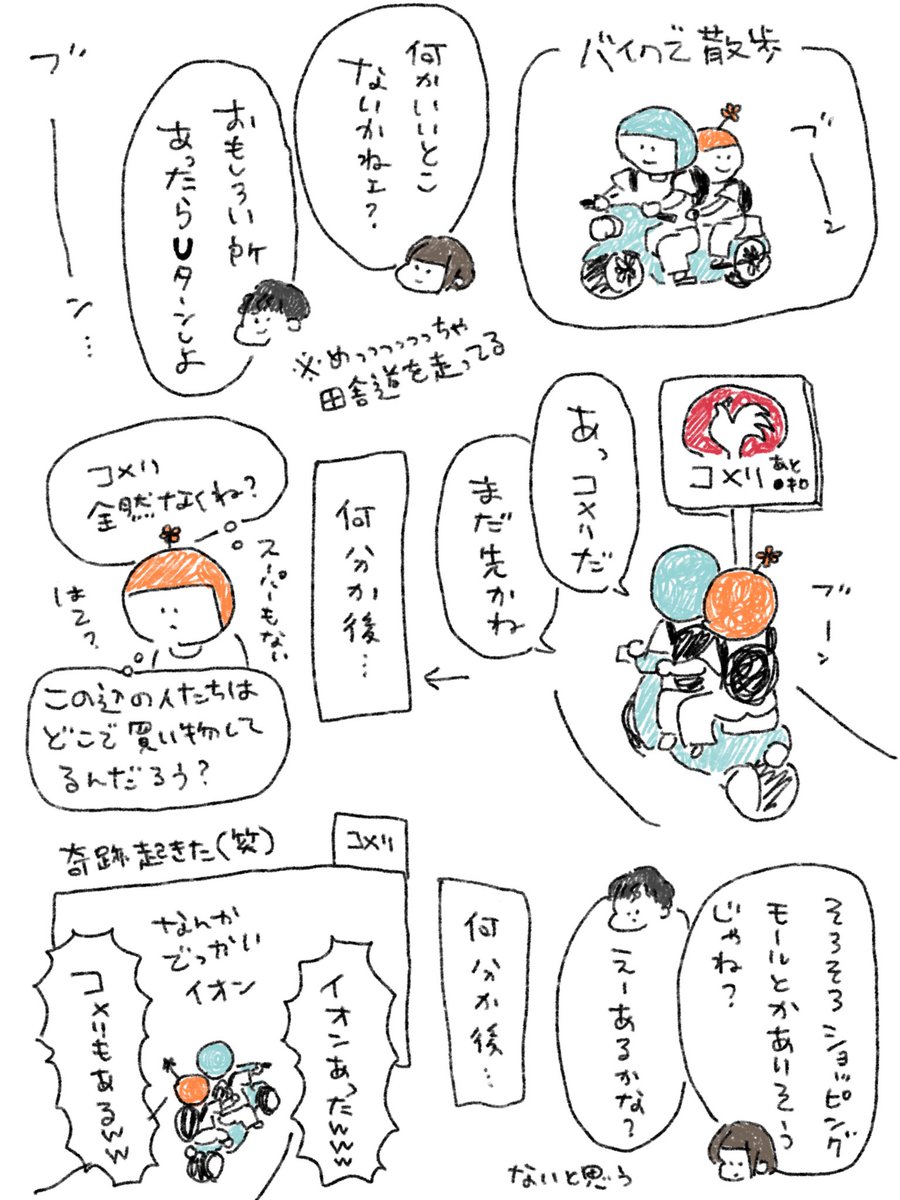 バイクで散歩
ブーン
何かいいとこ
ないかねェ?
おもしろい所
あったらUターンしよ
※めっっっっっっちゃ
田舎道を走ってる
ブーン…
コメリ
あと
●キロ
ブーン
あっコメリだ
まだ先かね
何分か後…
コメリ
全然なくね?
スーパーもない
はて?
この辺の人たちは
どこで買い物して
るんだろう?
そろそろショッピング
モールとかあいそうっ
じゃね?
えーあるかな?
ないと思う
何分か後…
奇跡起きた(笑)
コメリ
イオンあったwww
なんか
でっかい
イオン
コメリもあるww